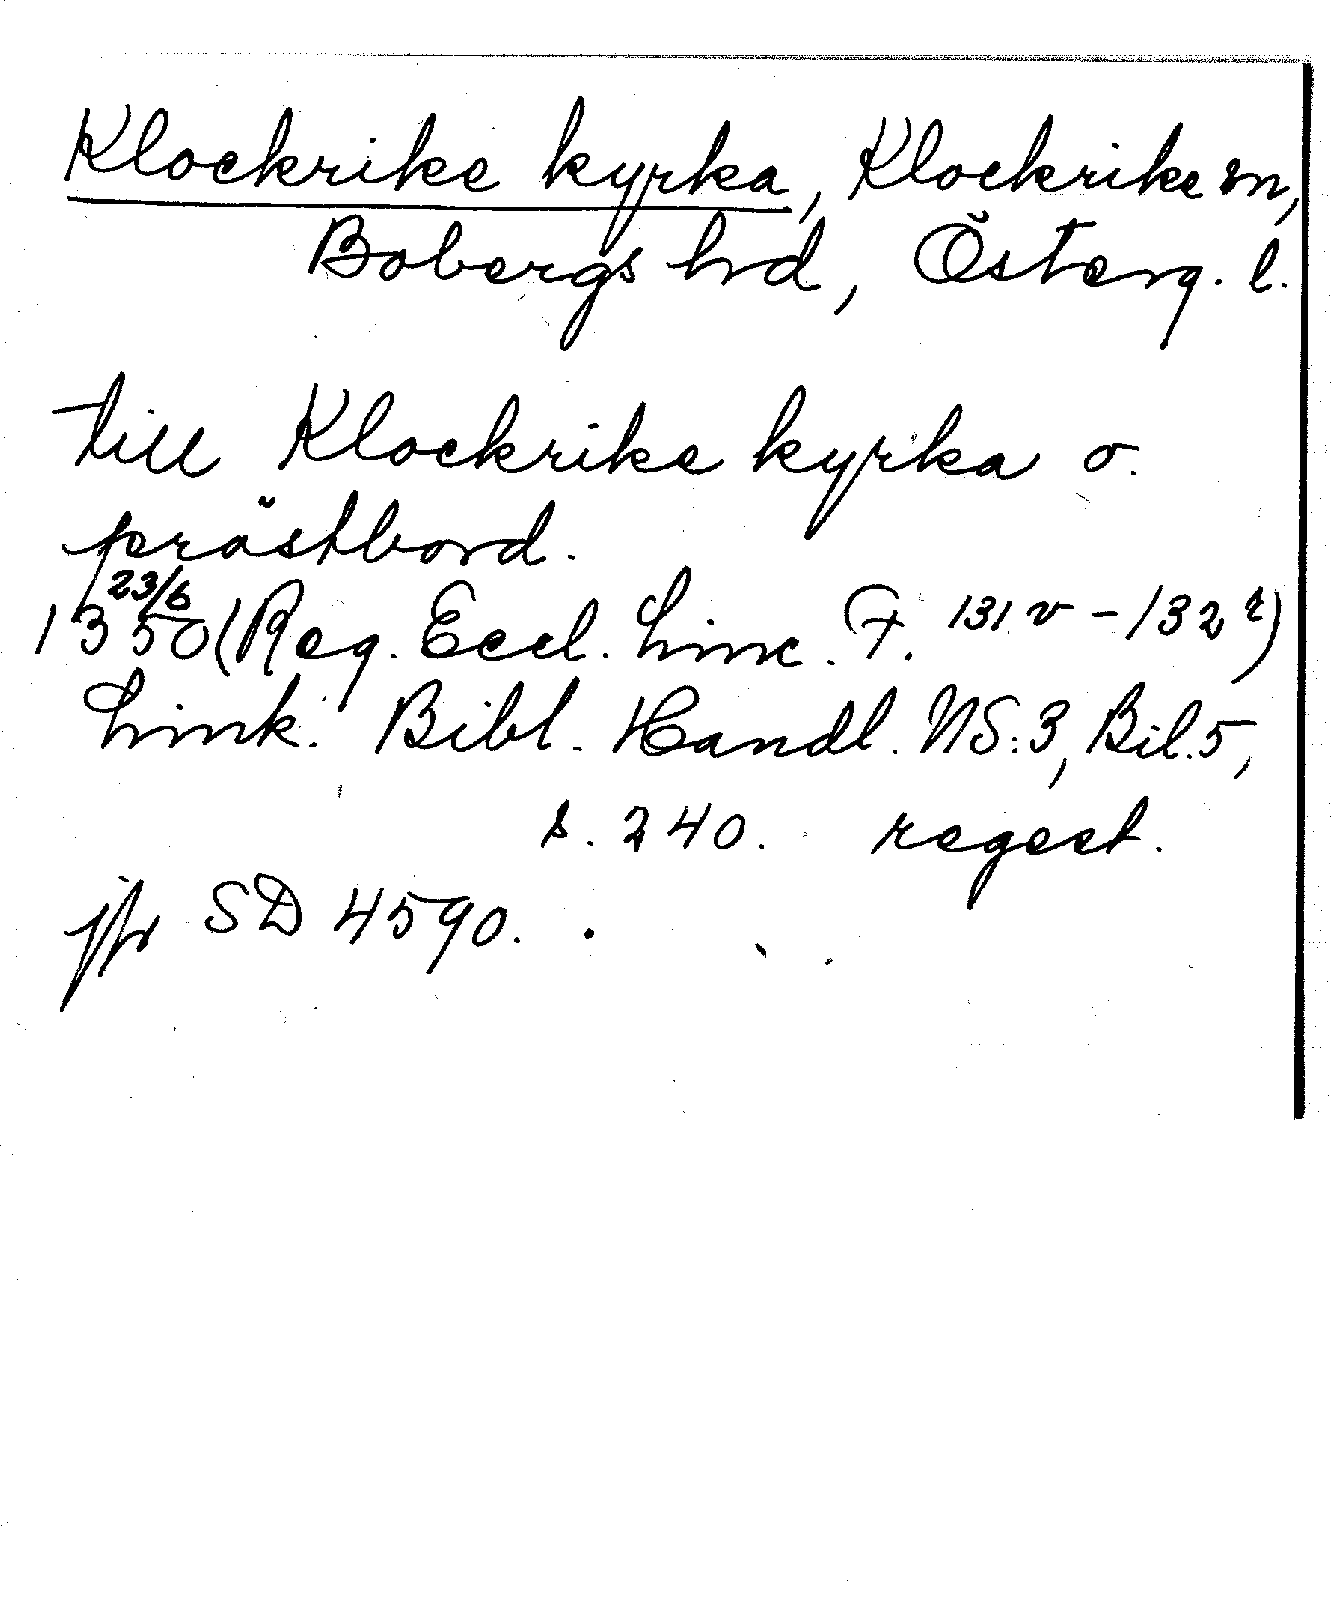 Klockrike kyrka, Klockrike sn,
Bobergs hd, Österg. l.
till Klockrike kyrka o.
prästbord.
1350 23/6 (Reg. Eccl. Linc. F. 131 v - 132 r)
Link. Bibl. Handl. NS:3, Bil.5,
s. 240. regest.
jfr SD 4590.